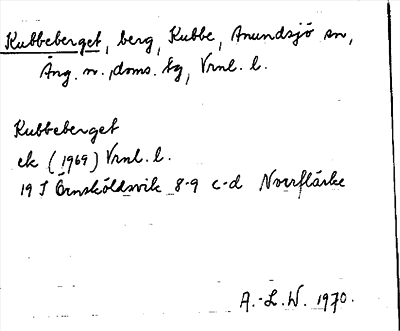 Kubbeberget, berg, Kubbe, Anundsjö sn,
Ång. n. doms. tg, Vrnl. l.
Kubbeberget
ek (1969) Vrnl. l.
19 J Örnsköldsvik 8-9 c-d Norrflärke
A.-L.W. 1970.